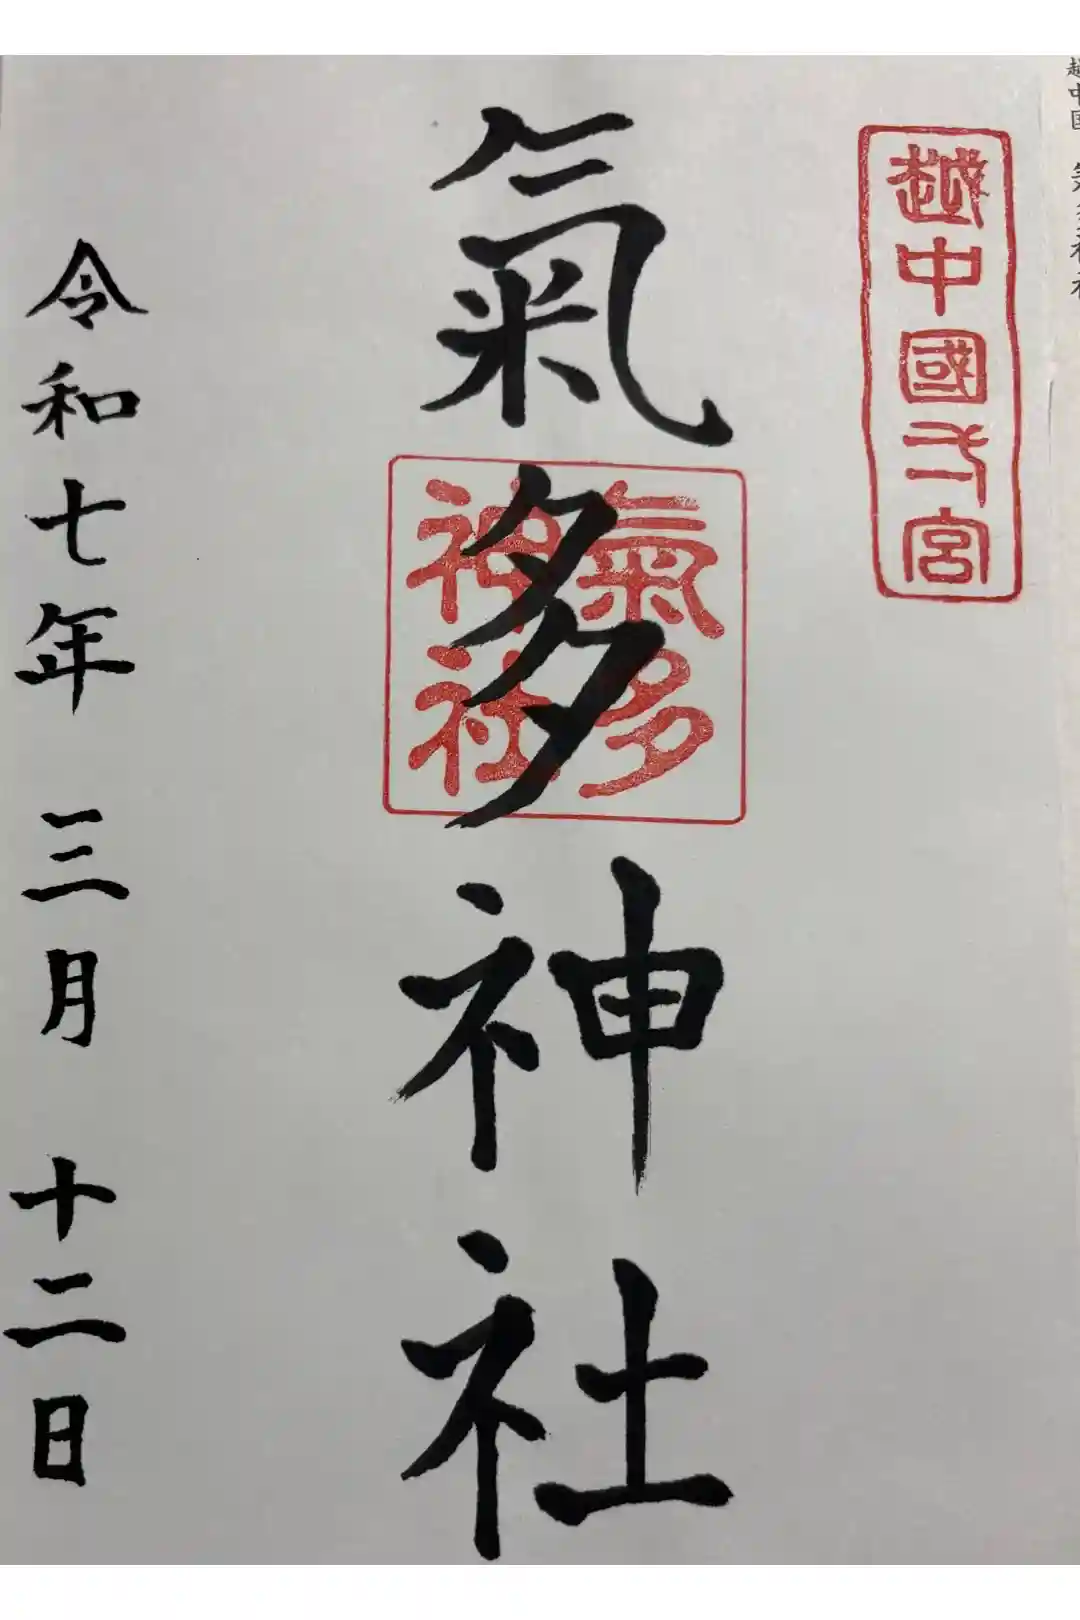 越中国
越中國一宮
氣多神社
氣多神社
令和七年 三月 十二日